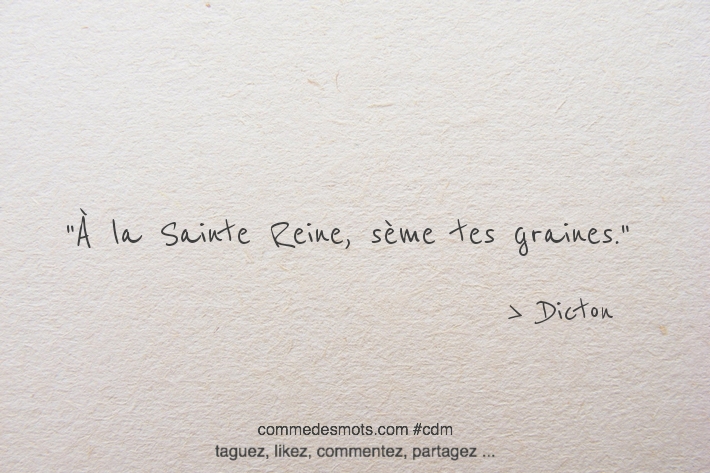 "À la Sainte Reine, sème tes graines."
> Dicton
commedesmots.com #cdm
taguez, likez, commentez, partagez ...